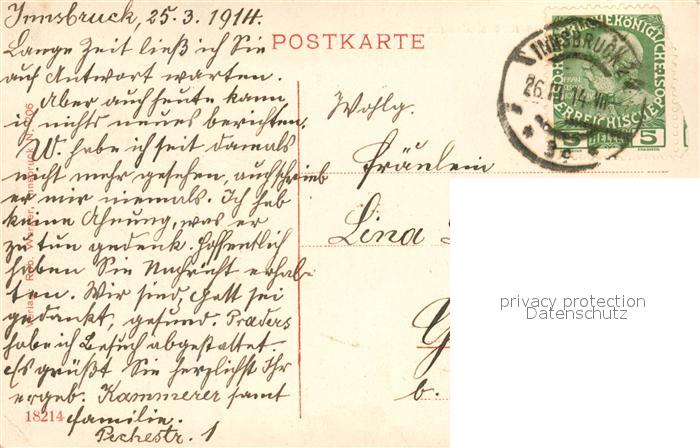 Innsbruck, 25.3.1914.
Lange Zeit ließ ich Sie
auf Antwort warten.
Aber auch heute kann
ich nichts neues berichten.
W. habe ich seit damals
nicht mehr gesehen, auch schrieb
er mir niemals. Ich hab
keine Ahnung, was er
zu tun gedenk. Hoffentlich
haben Sie Nachricht erhal-
ten. Wir sind, Gott sei
gedankt, gesund. Praders
habe ich Besuch abgestattet.
Es grüßt Sie herzlichst Ihr
ergeb. Kammerer samt
Familie.
Pechestr. 1
18214
POSTKARTE
Wohlg.
Fräulein
Lina
b.
INNSBRUCK 2
5 HELLER 5
privacy protection
Datenschutz